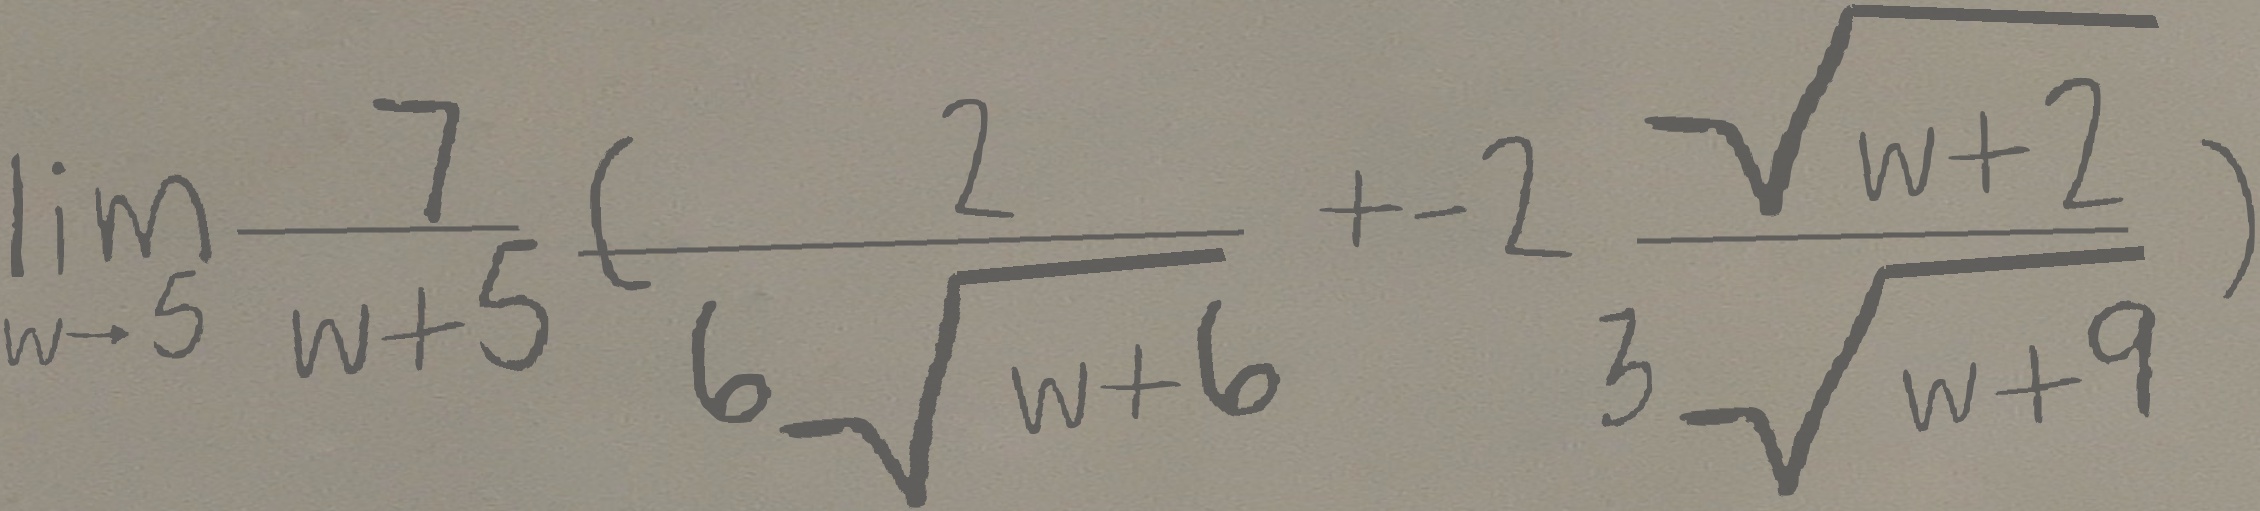 \lim_{w \to 5} \frac{7}{w+5} \left( \frac{2}{6\sqrt{w+6}} + -2 \frac{\sqrt{w+2}}{3\sqrt{w+9}} \right)